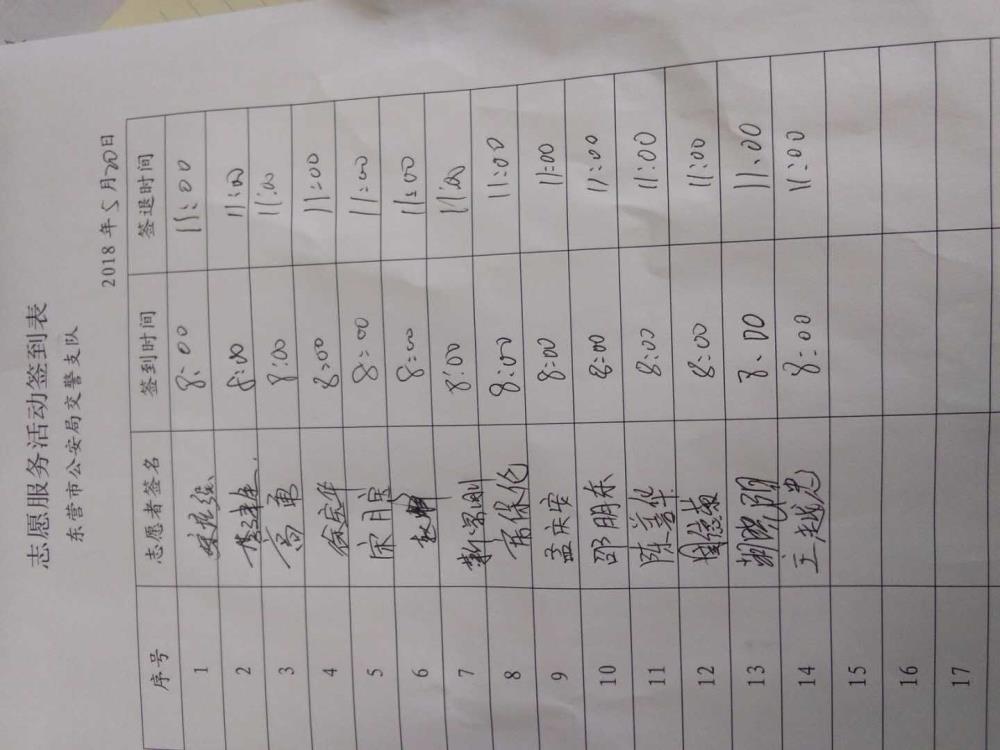 志愿服务活动签到表
东营市公安局交警支队
2018 年 5 月 20 日
序号 志愿者签名 签到时间 签退时间
1 8:00 11:00
2 8:00 11:00
3 高勇 8:00 11:00
4 徐宏华 8:00 11:00
5 宋月宝 8:00 11:00
6 8:00 11:00
7 8:00 11:00
8 常保伦 8:00 11:00
9 孟庆安 8:00 11:00
10 邵朋东 8:00 11:00
11 陈善华 8:00 11:00
12 8:00 11:00
13 8:00 11:00
14 王越光 8:00 11:00
15
16
17